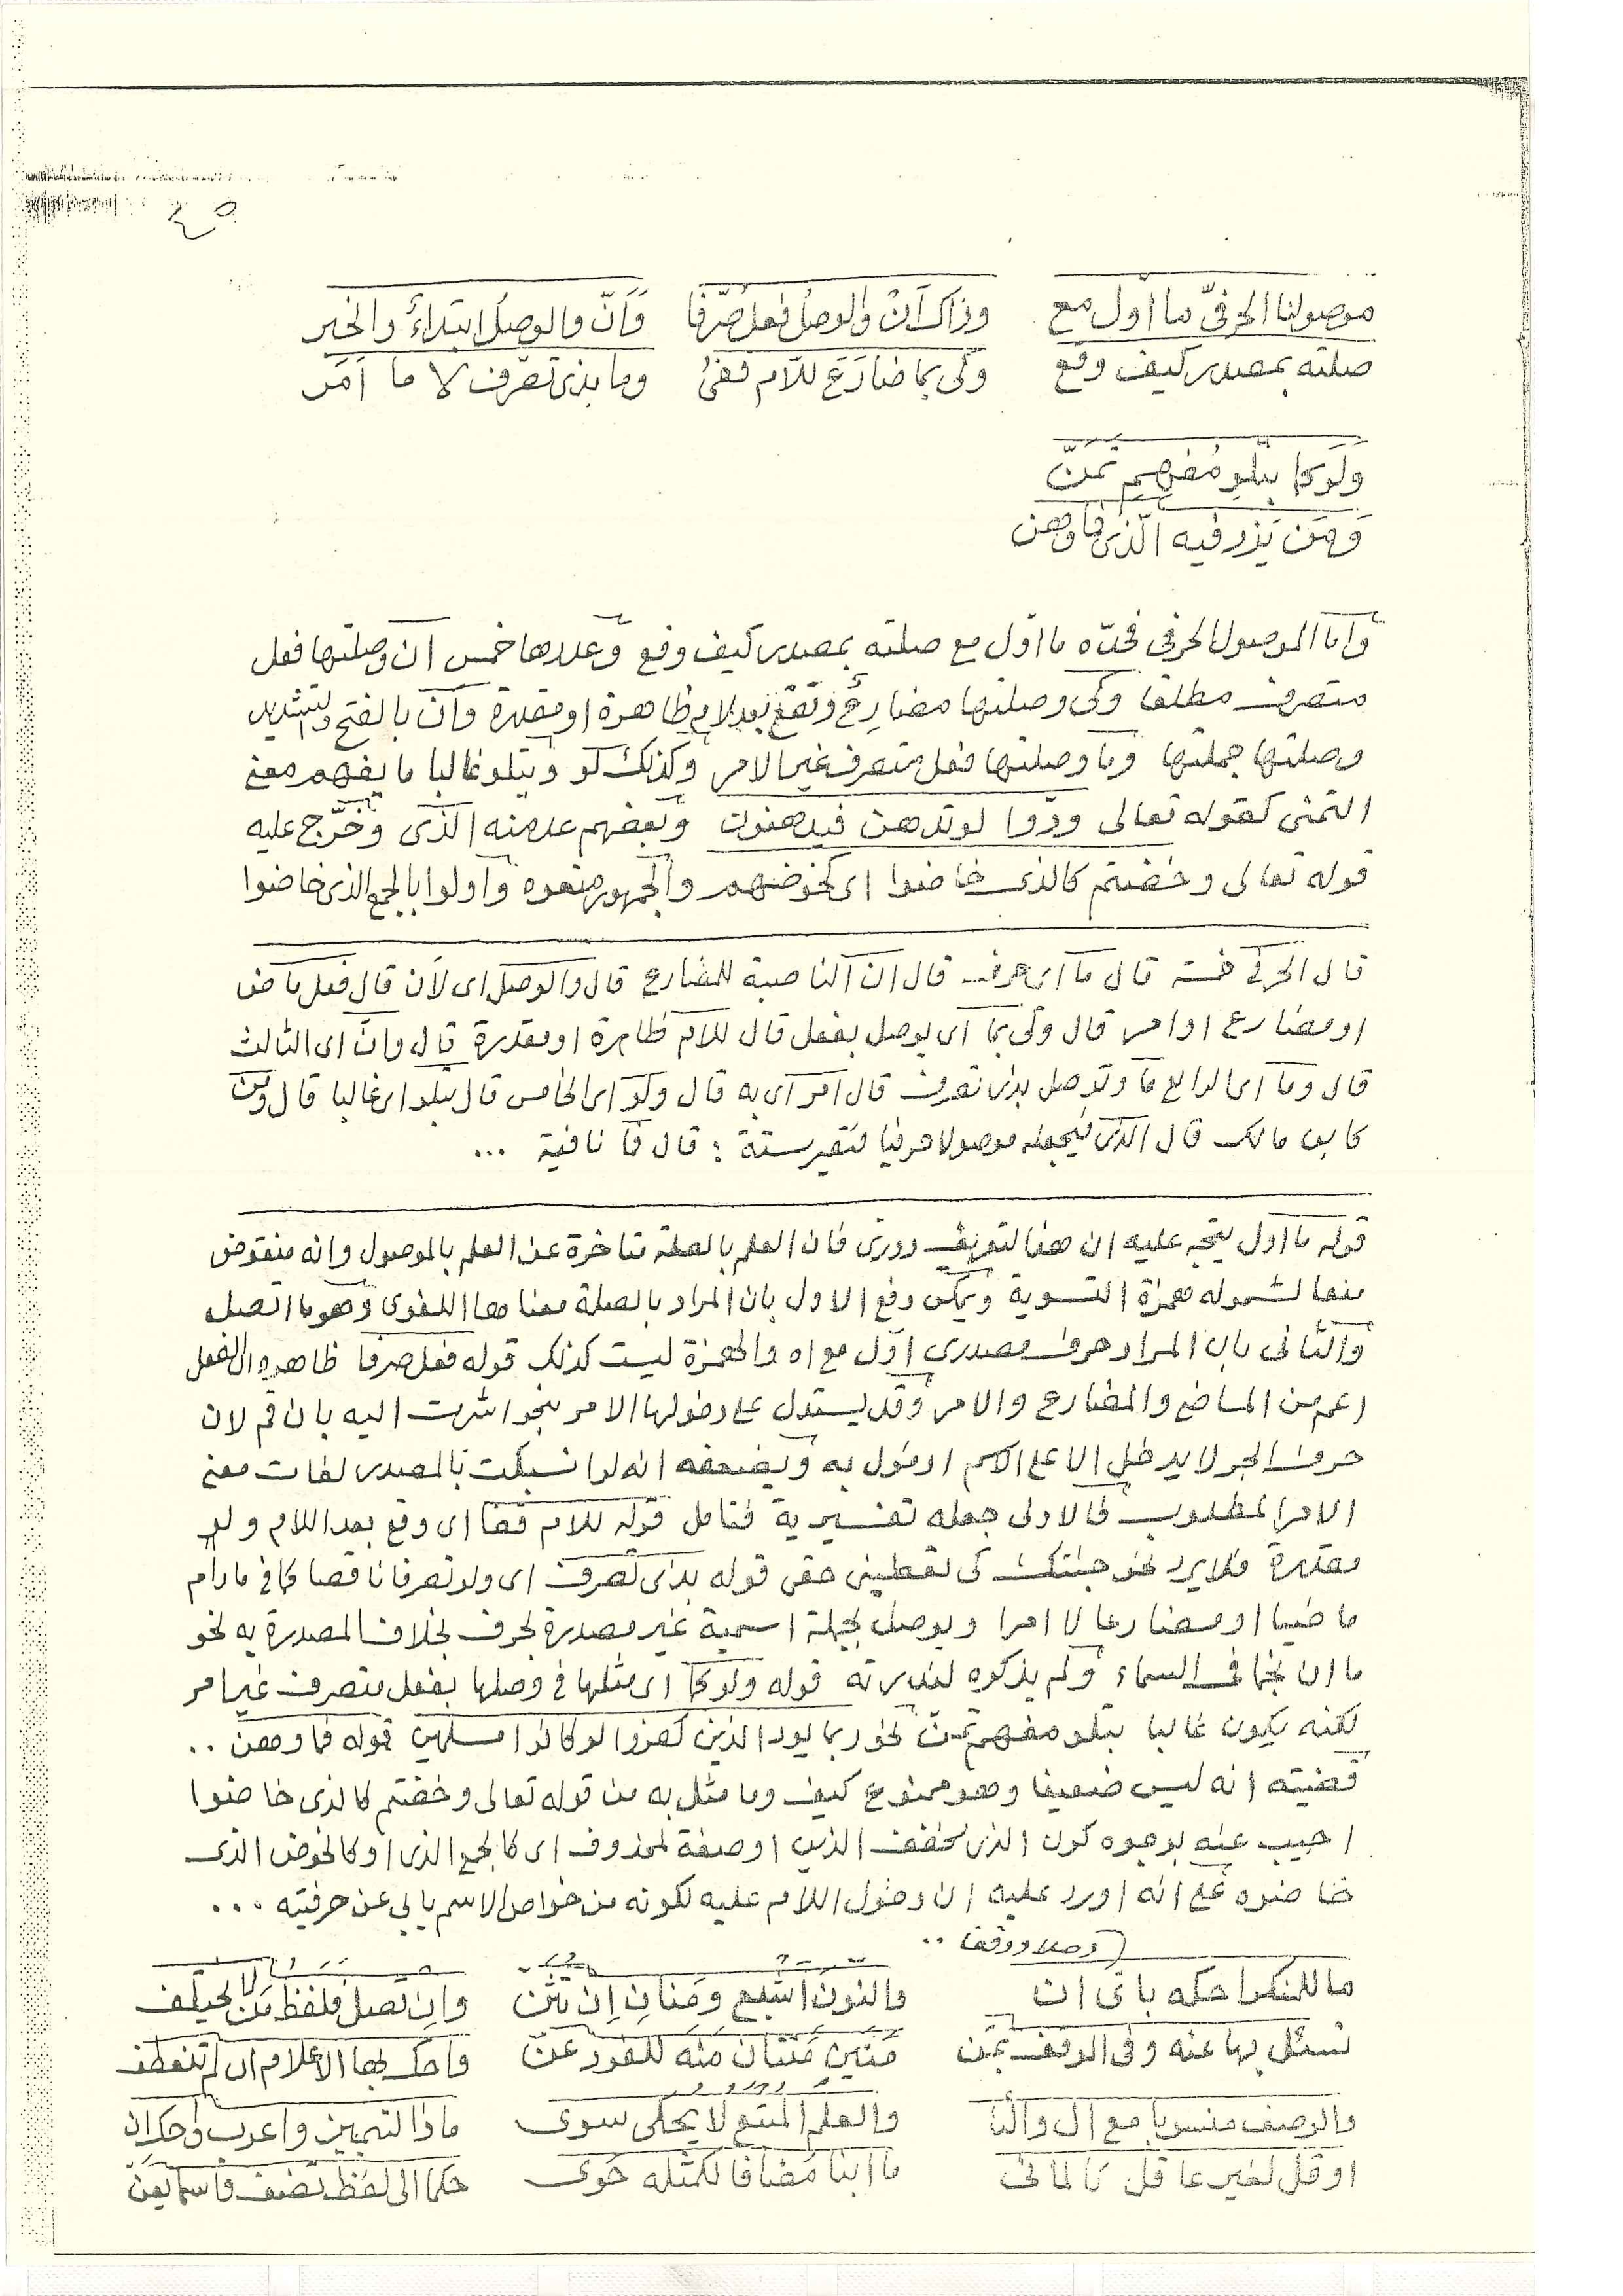 ٤٥
موصولنا الحرفيّ ما اول مع وذاك أن والوصل فعل صُرّفا وَأنّ والوصل ابتداءٌ والخبر
صلته بمصدر كيف وقع وكى بما ضارَعَ للّام قفى وما بذى تصرّف لا ما اَمَر
وَلَو كما يتلو مُفهِمِ تمَنّ
وَمَن يَزد فيه الّذى فما وهن
وأما الموصول الحرفى فحدّه ما اول مع صلته بمصدر كيف وقع وعددها خمس أن وصلتها فعل
متصرف مطلقا وكى وصلتها مضارعٌ وتقع بعد لام ظاهرة او مقدرة وأنّ بالفتح والتشديد
وصلتها جملتها وما وصلتها فعل متصرف غير الامر وكذلك لو ويتلو غالبا ما يفهم معنى
التمنى كقوله تعالى ودّوا لو تدهن فيدهنون وبعضهم عد منه الذى وخَرَّج عليه
قوله تعالى وخضتم كالذى خاضوا اى كخوضهم والجمهور منعوه واولوا بالجمع الذى خاضوا
قال الحرفى خمسة قال ما اى حرف قال ان الناصبة للمضارع قال والوصل اى لأن قال فعل ماض
او مضارع او امر قال وكى بما اى يوصل بفعل قال للام ظاهرة او مقدرة قال وانّ اى الثالث
قال وما اى الرابع ما وتوصل بذى تصرف قال امر اى به قال ولو اى الخامس قال يتلو اى غالبا قال ومن
كابن مالك قال الذى فيجعله موصولا حرفيا فتصير ستة : قال فما نافية ...
قوله ما اول يتجه عليه ان هذا التعريف دورى فان العلم بالصلة متاخرة عن العلم بالموصول وانه منقوض
منعا لشموله همزة التسوية ويمكن دفع الاول بان المراد بالصلة معناها اللغوى وهو ما اتصل
والثانى بان المراد حرف مصدرى اول مع اه والهمزة ليست كذلك قوله فعل صرفا ظاهره ان الفعل
اعم من الماضى والمضارع والامر وقد يستدل على دخولها الامر بنحو اشرت اليه بان قم لان
حرف الجر لا يدخل الا على الاسم او مؤول به ويضعفه انه لو انسبكت بالمصدر لفات معنى
الامر المطلوب فالاولى جعله تفسيرية فتامل قوله للام قفا اى وقع بعد اللام ولو
مقدرة فلا يرد نحو جئتك كى تعطينى حقى قوله بذى تصرف اى ولو تصرفا ناقصا كما فى مادام
ماضيا او مضارعا لا امرا ويوصل بجملة اسمية غير مصدرة بحرف بخلاف المصدرة به نحو
ما ان نجما فى السماء ولم يذكره لندرته قوله ولو كما اى مثلها فى وصلها بفعل متصرف غير امر
لكنه يكون غالبا يتلو مفهم تمن نحو ربما يود الذين كفروا لو كانوا مسلمين قوله فما وهن ..
قضيته انه ليس ضعيفا وهو ممنوع كيف وما مثل به من قوله تعالى وخضتم كالذى خاضوا
اجيب عنه بوجوه كون الذى مخفف الذين او صفة لمحذوف اى كالجمع الذى او كالخوض الذى
خاضوه على انه اورد عليه ان دخول اللام عليه لكونه من خواص الاسم يابى عن حرفيته ...
وصلا ووقفا ..
ما للمنكر احكه باى ان والنون اشبع ومنانِ اِن تثن واِن تصل فلفظ مَن لا يختلف
تسئل بها عنه وفى الوقف بمَن مَنَين مَنتان مَنَه للفرد عنّ واحك بها الاعلام ان لم تنعطف
والوصف منسوبا مع ال واليا والعلم المتبع لا يحكى سوى ماذا لتمييز واعرب واحك ان
او قل لغير عاقل كالمائى ما ابنا مُضافا لكمثله حَوى حكما الى لفظ تضف فاسما يعنّ